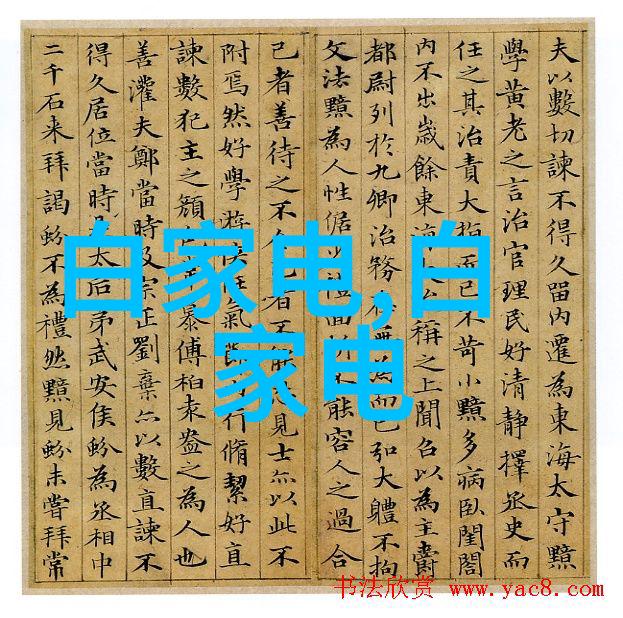 夫以數切諫不得久留內遷為東海太守黯
學黃老之言治官理民好清静擇丞史而
任之其治責大指而已不苛小黯多病臥閨閤
內不出歲餘東稱之上聞召以為主爵
都尉列於九卿治務為而已弘大體不拘
文法黯為人性倨面能容人之過合
己者善待之不者見士亦以此不
附焉然好學游俠氣行脩絜好直
諫數犯主之顏慕傅柏袁盎之為人也
善灌夫鄭當時及宗正劉棄亦以數直諫不
得久居位當時太后弟武安侯蚡為丞相中
二千石来拜謁蚡不為禮然黯見蚡未嘗拜常
白家电,白
家电
书法欣赏 www.yac8.com